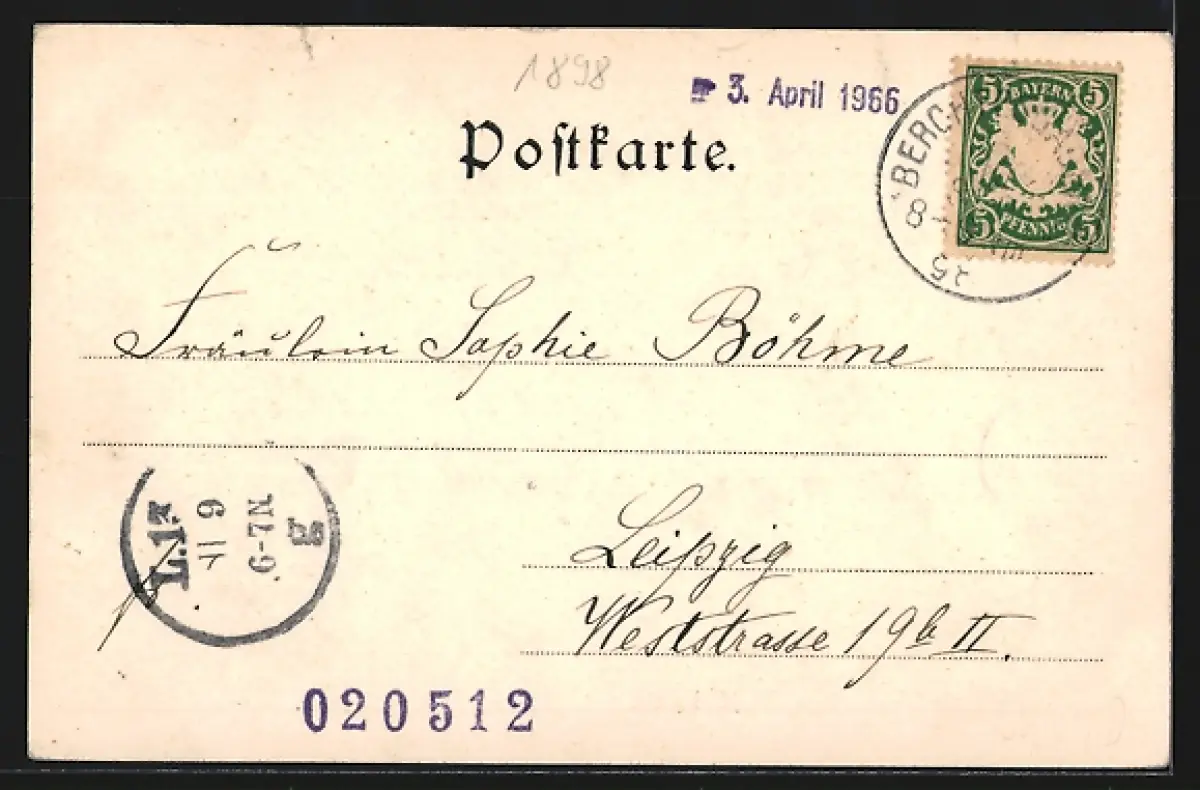 1898
3. April 1966
Postkarte.
5 BAYERN 5
5 PFENNIG 5
8
25
Fräulein Sophie Böhme
6-7N
Leipzig
Weststrasse 19b II.
020512